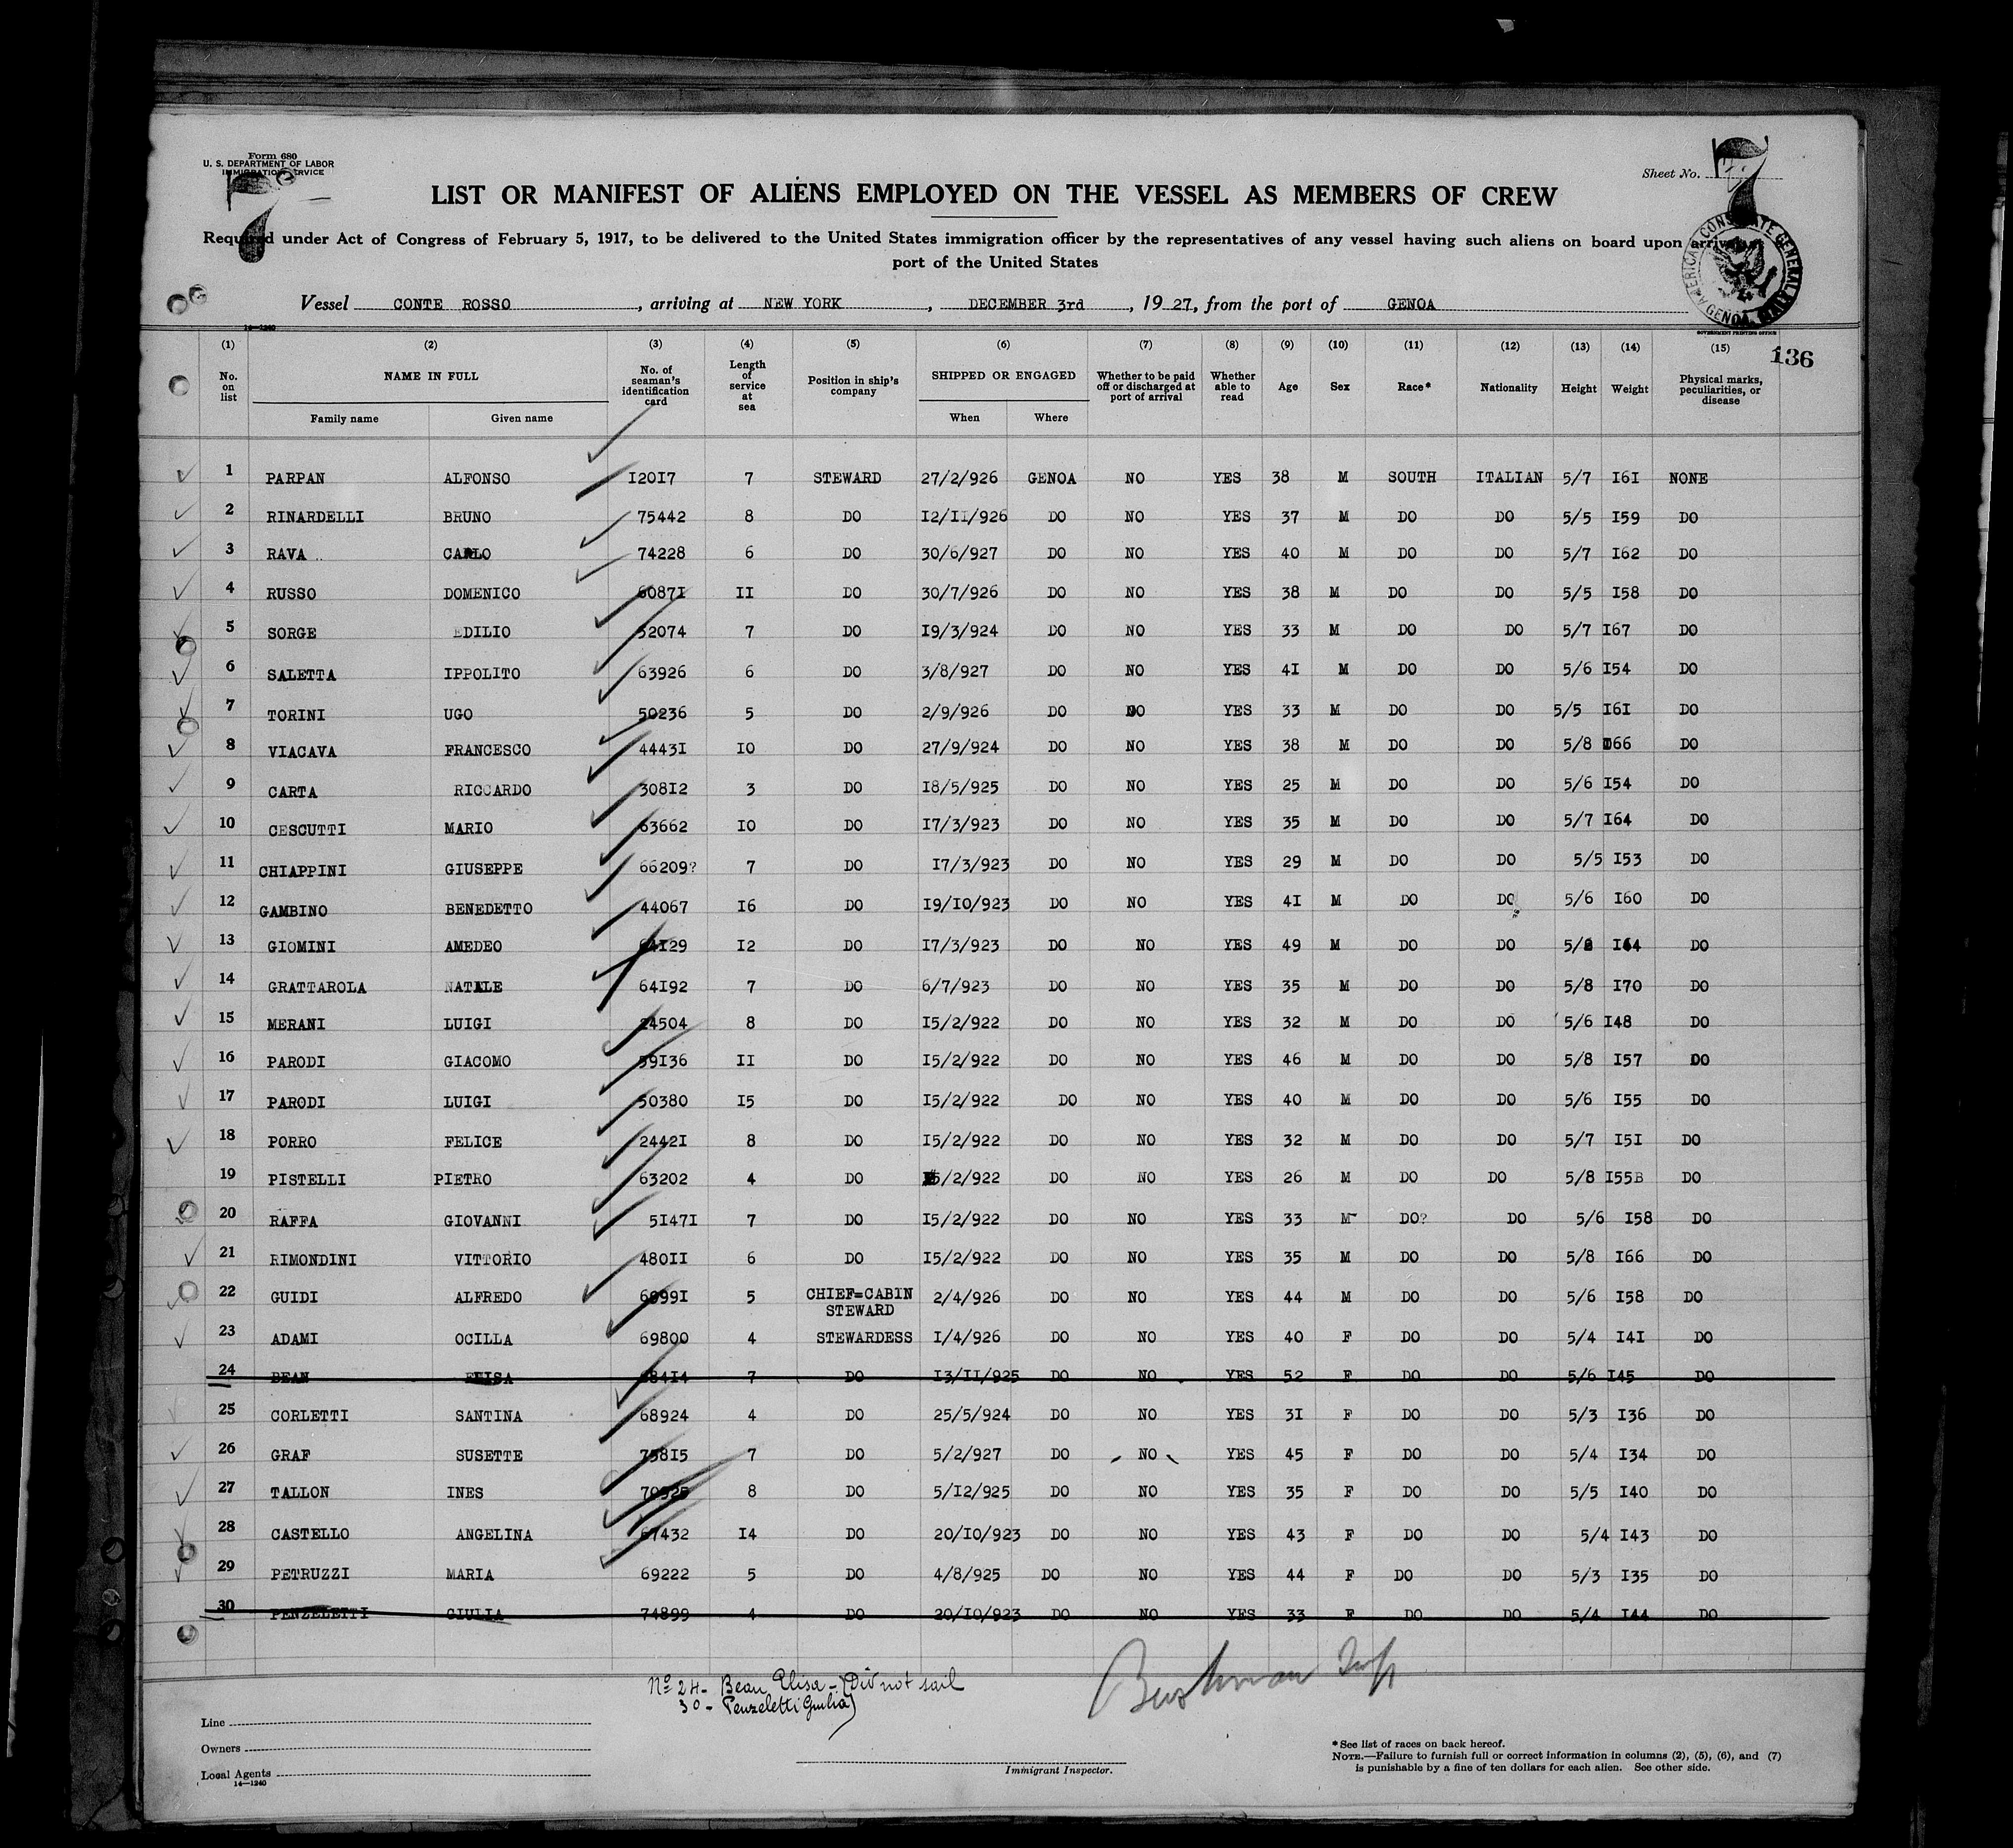 Form 680
U. S. DEPARTMENT OF LABOR
IMMIGRATION SERVICE
7
Sheet No. 7
LIST OR MANIFEST OF ALIENS EMPLOYED ON THE VESSEL AS MEMBERS OF CREW
Required under Act of Congress of February 5, 1917, to be delivered to the United States immigration officer by the representatives of any vessel having such aliens on board upon arrival
port of the United States
AMERICAN CONSULATE GENERAL GENOA, ITALY
Vessel CONTE ROSSO, arriving at NEW YORK, DECEMBER 3rd, 19 27, from the port of GENOA
14—1240
GOVERNMENT PRINTING OFFICE
136
(1) (2) (3) (4) (5) (6) (7) (8) (9) (10) (11) (12) (13) (14) (15)
No. on list NAME IN FULL Family name Given name No. of seaman's identification card Length of service at sea Position in ship's company SHIPPED OR ENGAGED When Where Whether to be paid off or discharged at port of arrival Whether able to read Age Sex Race* Nationality Height Weight Physical marks, peculiarities, or disease
1 PARPAN ALFONSO I20I7 7 STEWARD 27/2/926 GENOA NO YES 38 M SOUTH ITALIAN 5/7 I6I NONE
2 RINARDELLI BRUNO 75442 8 DO I2/II/926 DO NO YES 37 M DO DO 5/5 I59 DO
3 RAVA CARLO 74228 6 DO 30/6/927 DO NO YES 40 M DO DO 5/7 I62 DO
4 RUSSO DOMENICO 6087I II DO 30/7/926 DO NO YES 38 M DO DO 5/5 I58 DO
5 SORGE EDILIO 52074 7 DO I9/3/924 DO NO YES 33 M DO DO 5/7 I67 DO
6 SALETTA IPPOLITO 63926 6 DO 3/8/927 DO NO YES 4I M DO DO 5/6 I54 DO
7 TORINI UGO 50236 5 DO 2/9/926 DO NO YES 33 M DO DO 5/5 I6I DO
8 VIACAVA FRANCESCO 4443I IO DO 27/9/924 DO NO YES 38 M DO DO 5/8 I66 DO
9 CARTA RICCARDO 308I2 3 DO I8/5/925 DO NO YES 25 M DO DO 5/6 I54 DO
10 CESCUTTI MARIO 63662 IO DO I7/3/923 DO NO YES 35 M DO DO 5/7 I64 DO
11 CHIAPPINI GIUSEPPE 66209? 7 DO I7/3/923 DO NO YES 29 M DO DO 5/5 I53 DO
12 GAMBINO BENEDETTO 44067 I6 DO I9/IO/923 DO NO YES 4I M DO DO 5/6 I60 DO
13 GIOMINI AMEDEO 64I29 I2 DO I7/3/923 DO NO YES 49 M DO DO I44 DO
14 GRATTAROLA NATALE 64I92 7 DO 6/7/923 DO NO YES 35 M DO DO 5/8 I70 DO
15 MERANI LUIGI 24504 8 DO I5/2/922 DO NO YES 32 M DO DO 5/6 I48 DO
16 PARODI GIACOMO 59I36 II DO I5/2/922 DO NO YES 46 M DO DO 5/8 I57 DO
17 PARODI LUIGI 50380 I5 DO I5/2/922 DO NO YES 40 M DO DO 5/6 I55 DO
18 PORRO FELICE 2442I 8 DO I5/2/922 DO NO YES 32 M DO DO 5/7 I5I DO
19 PISTELLI PIETRO 63202 4 DO I5/2/922 DO NO YES 26 M DO DO 5/8 I55B DO
20 RAFFA GIOVANNI 5I47I 7 DO I5/2/922 DO NO YES 33 M DO? DO 5/6 I58 DO
21 RIMONDINI VITTORIO 480II 6 DO I5/2/922 DO NO YES 35 M DO DO 5/8 I66 DO
22 GUIDI ALFREDO 5 CHIEF=CABIN STEWARD 2/4/926 DO NO YES 44 M DO DO 5/6 I58 DO
23 ADAMI OCILLA 69800 4 STEWARDESS I/4/926 DO NO YES 40 F DO DO 5/4 I4I DO
24 BEAN ELISA 684I4 7 DO I3/II/925 DO NO YES 52 F DO DO 5/6 I45 DO
25 CORLETTI SANTINA 68924 4 DO 25/5/924 DO NO YES 3I F DO DO 5/3 I36 DO
26 GRAF SUSETTE 758I5 7 DO 5/2/927 DO NO YES 45 F DO DO 5/4 I34 DO
27 TALLON INES 8 DO 5/I2/925 DO NO YES 35 F DO DO 5/5 I40 DO
28 CASTELLO ANGELINA 67432 I4 DO 20/IO/923 DO NO YES 43 F DO DO 5/4 I43 DO
29 PETRUZZI MARIA 69222 5 DO 4/8/925 DO NO YES 44 F DO DO 5/3 I35 DO
30 PENZELETTI GIULIA 74899 4 DO 20/IO/923 DO NO YES 33 F DO DO 5/4 I44 DO
Nº 24- Bean Elisa - (Did not sail
30 - Penzeletti Giulia)
Bushman Insp
Line
Owners
Local Agents
14—1240
Immigrant Inspector.
*See list of races on back hereof.
NOTE.—Failure to furnish full or correct information in columns (2), (5), (6), and (7)
is punishable by a fine of ten dollars for each alien. See other side.